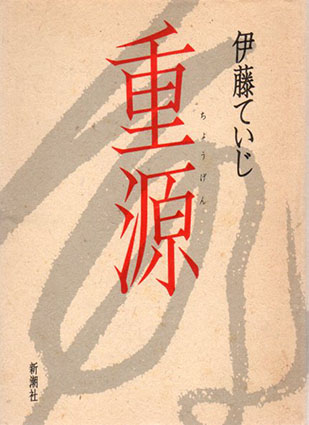 伊藤ていじ
重源
ちょうげん
新潮社